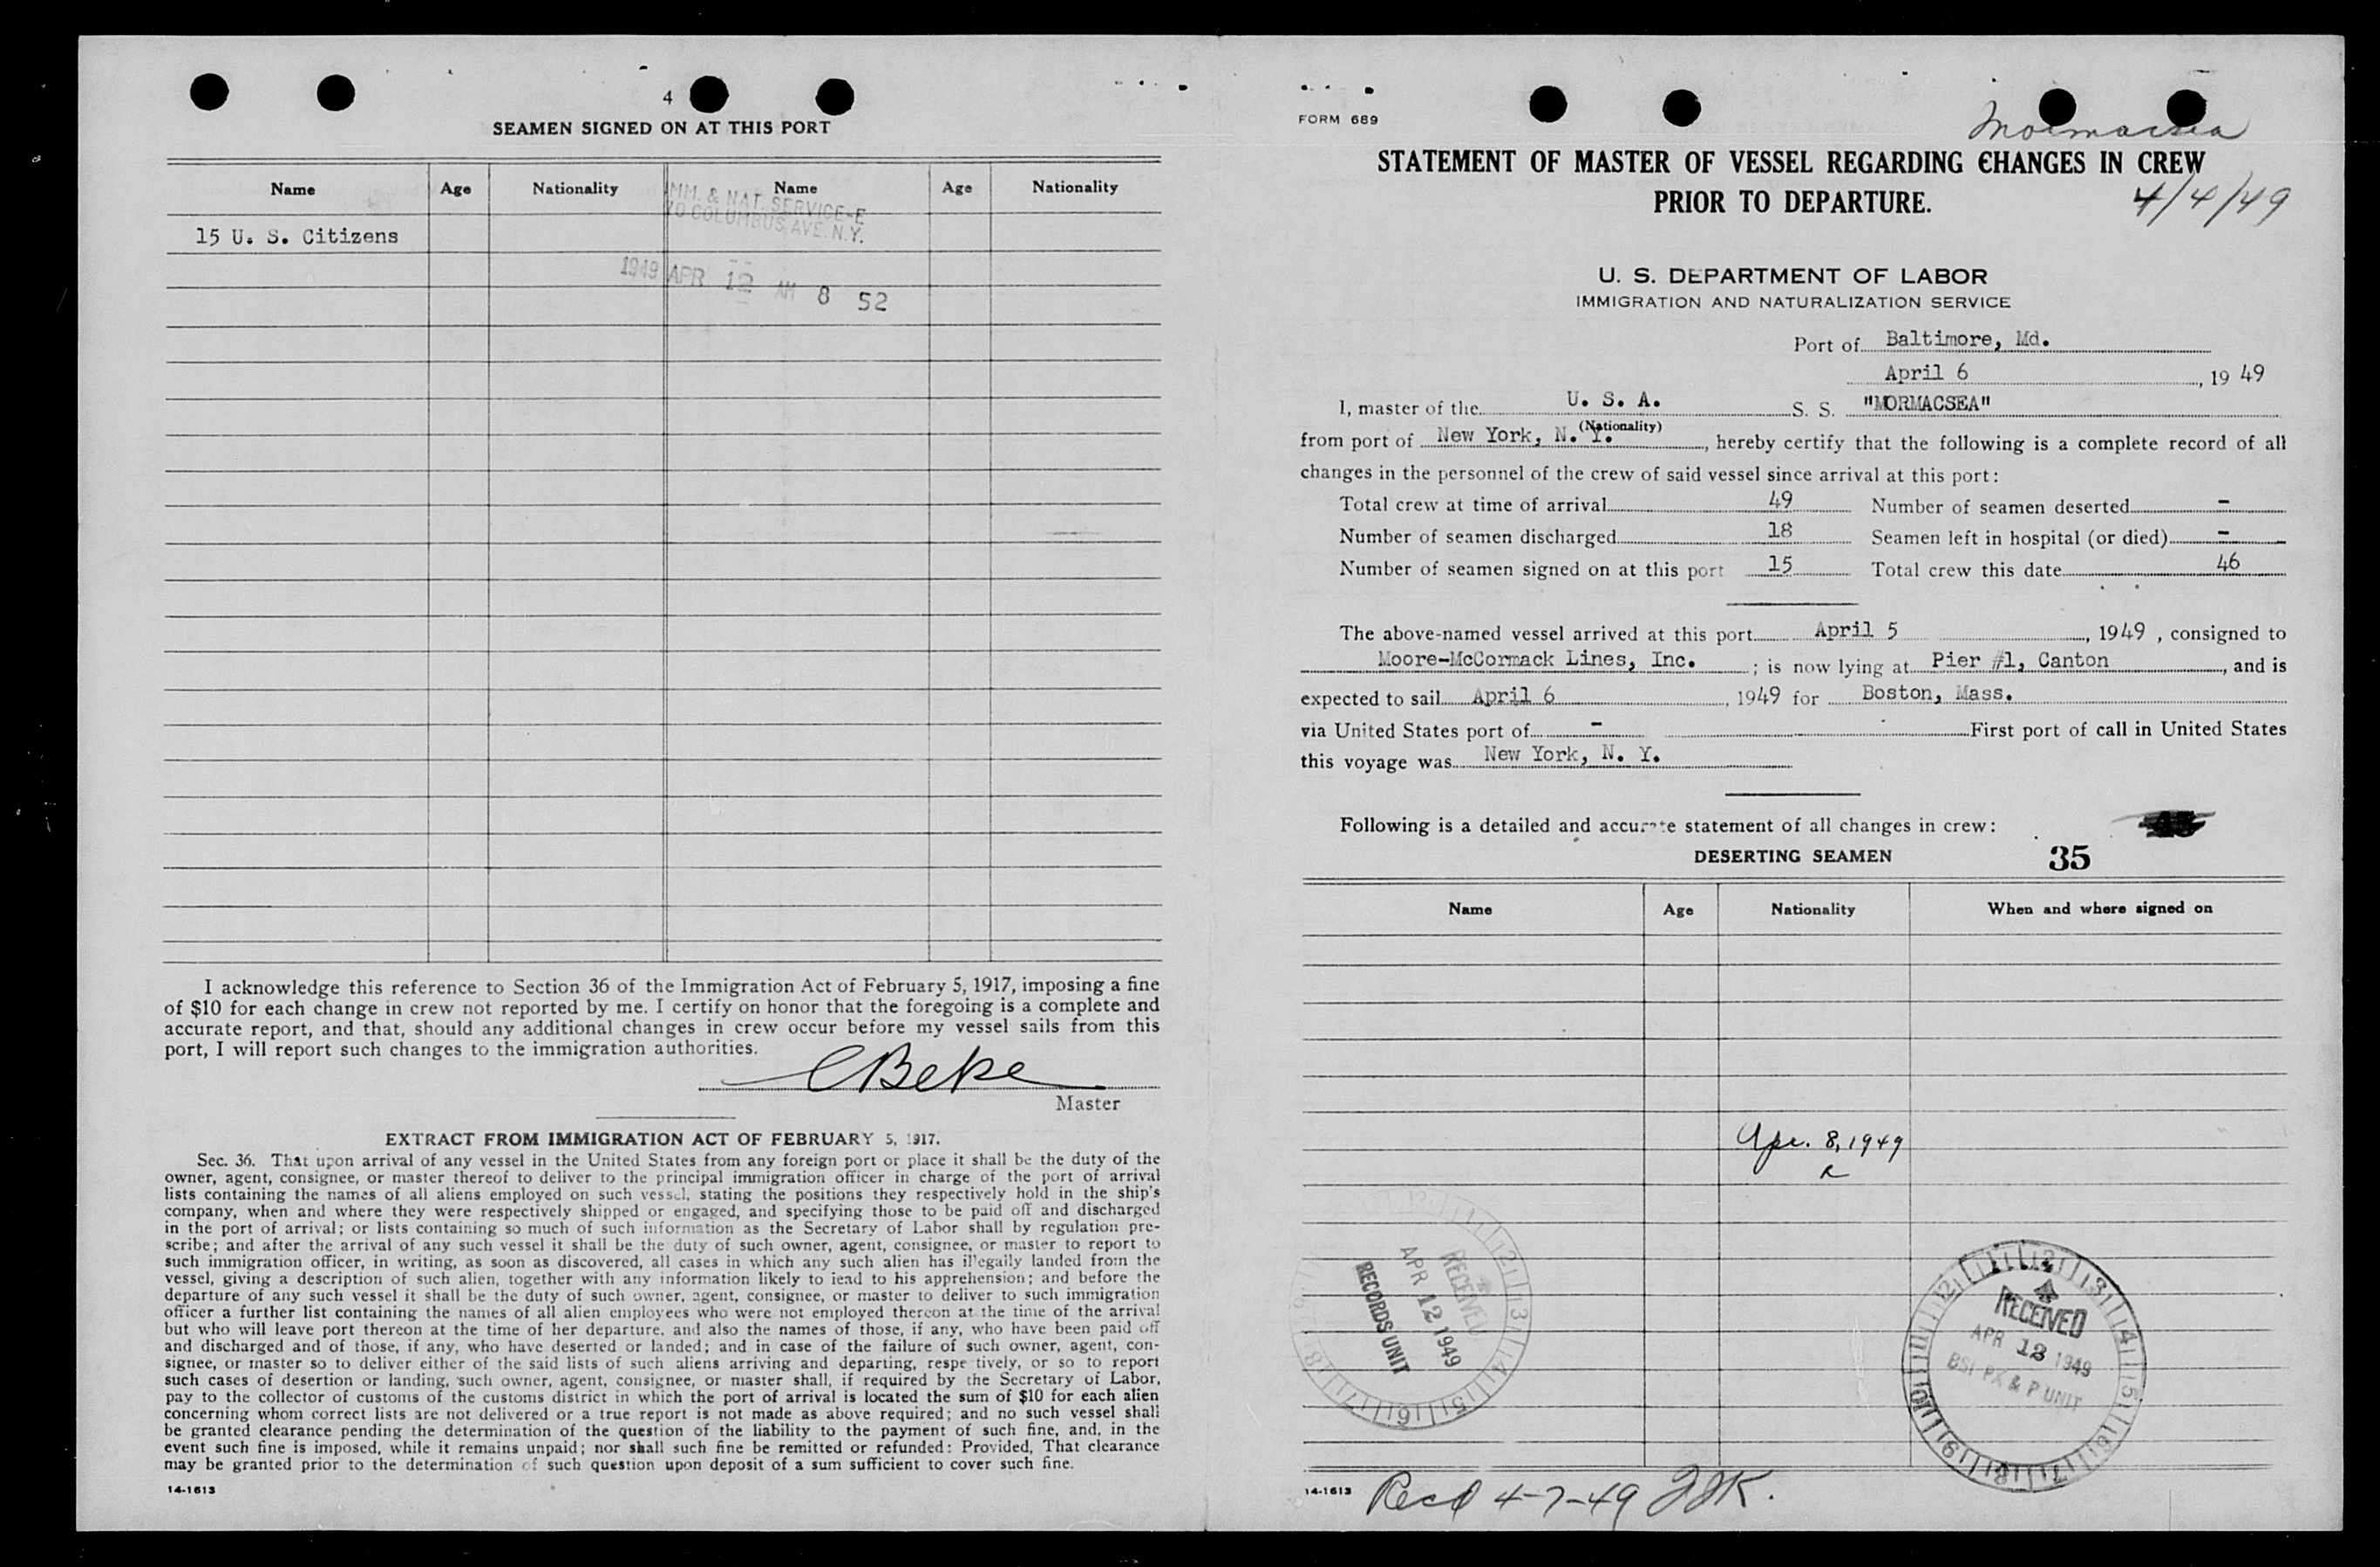 4
SEAMEN SIGNED ON AT THIS PORT
Name Age Nationality Name Age Nationality
MM. & NAT. SERVICE-E
70 COLUMBUS AVE. N.Y.
15 U. S. Citizens
1949 APR 12 AM 8 52
I acknowledge this reference to Section 36 of the Immigration Act of February 5, 1917, imposing a fine
of $10 for each change in crew not reported by me. I certify on honor that the foregoing is a complete and
accurate report, and that, should any additional changes in crew occur before my vessel sails from this
port, I will report such changes to the immigration authorities.
CBeke
Master
EXTRACT FROM IMMIGRATION ACT OF FEBRUARY 5, 1917.
Sec. 36. That upon arrival of any vessel in the United States from any foreign port or place it shall be the duty of the
owner, agent, consignee, or master thereof to deliver to the principal immigration officer in charge of the port of arrival
lists containing the names of all aliens employed on such vessel, stating the positions they respectively hold in the ship's
company, when and where they were respectively shipped or engaged, and specifying those to be paid off and discharged
in the port of arrival; or lists containing so much of such information as the Secretary of Labor shall by regulation pre-
scribe; and after the arrival of any such vessel it shall be the duty of such owner, agent, consignee, or master to report to
such immigration officer, in writing, as soon as discovered, all cases in which any such alien has illegally landed from the
vessel, giving a description of such alien, together with any information likely to lead to his apprehension; and before the
departure of any such vessel it shall be the duty of such owner, agent, consignee, or master to deliver to such immigration
officer a further list containing the names of all alien employees who were not employed thereon at the time of the arrival
but who will leave port thereon at the time of her departure, and also the names of those, if any, who have been paid off
and discharged and of those, if any, who have deserted or landed; and in case of the failure of such owner, agent, con-
signee, or master so to deliver either of the said lists of such aliens arriving and departing, respe tively, or so to report
such cases of desertion or landing, such owner, agent, consignee, or master shall, if required by the Secretary of Labor,
pay to the collector of customs of the customs district in which the port of arrival is located the sum of $10 for each alien
concerning whom correct lists are not delivered or a true report is not made as above required; and no such vessel shall
be granted clearance pending the determination of the question of the liability to the payment of such fine, and, in the
event such fine is imposed, while it remains unpaid; nor shall such fine be remitted or refunded: Provided, That clearance
may be granted prior to the determination of such question upon deposit of a sum sufficient to cover such fine.
14-1613
FORM 689
Mormacsea
STATEMENT OF MASTER OF VESSEL REGARDING CHANGES IN CREW
PRIOR TO DEPARTURE.
4/4/49
U. S. DEPARTMENT OF LABOR
IMMIGRATION AND NATURALIZATION SERVICE
Port of Baltimore, Md.
April 6, 19 49
I, master of the U. S. A. S. S. "MORMACSEA"
(Nationality)
from port of New York, N. Y., hereby certify that the following is a complete record of all
changes in the personnel of the crew of said vessel since arrival at this port:
Total crew at time of arrival 49 Number of seamen deserted -
Number of seamen discharged 18 Seamen left in hospital (or died) -
Number of seamen signed on at this port 15 Total crew this date 46
The above-named vessel arrived at this port April 5, 1949, consigned to
Moore-McCormack Lines, Inc. ; is now lying at Pier #1, Canton, and is
expected to sail April 6, 1949 for Boston, Mass.
via United States port of - First port of call in United States
this voyage was New York, N. Y.
Following is a detailed and accurate statement of all changes in crew:
DESERTING SEAMEN 35
Name Age Nationality When and where signed on
Apr. 8, 1949
RECEIVED
APR 12 1949
RECORDS UNIT
RECEIVED
APR 12 1949
BSI PX & P UNIT
14-1613
Recd 4-7-49 JJK.